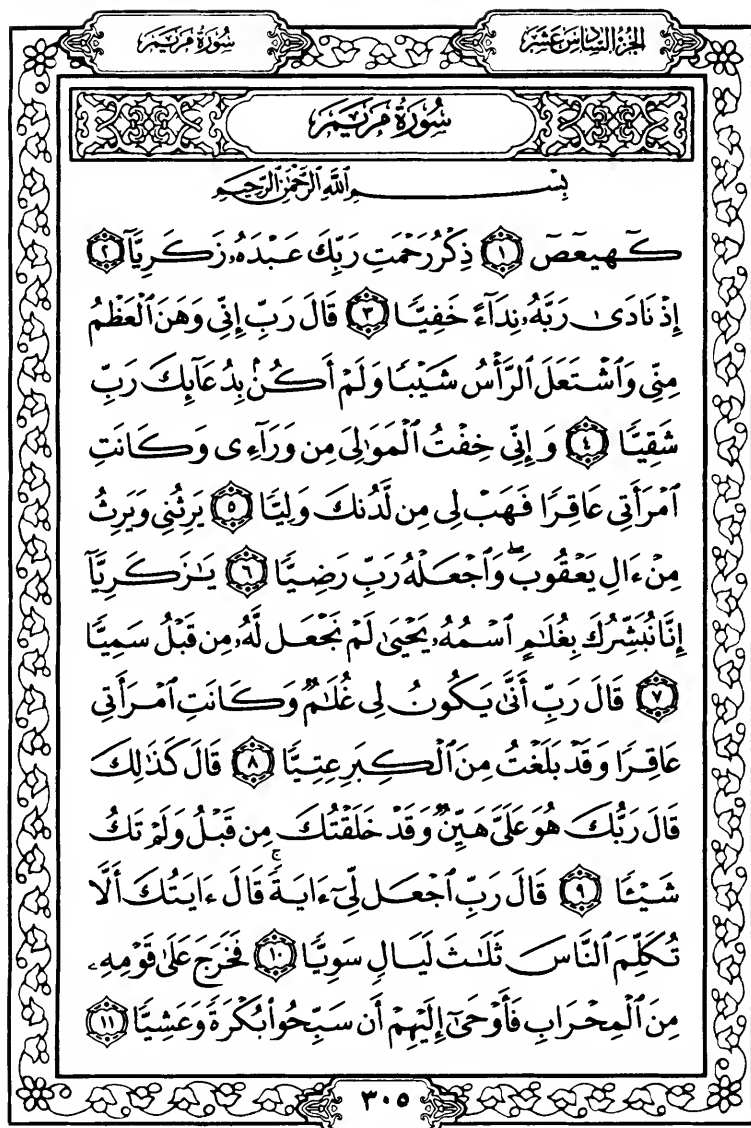 الجزء السادس عشر
سورة مريم
سورة مريم
بسم الله الرحمن الرحيم
كٓهيعٓصٓ ١ ذِكْرُ رَحْمَتِ رَبِّكَ عَبْدَهُۥ زَكَرِيَّآ ٢
إِذْ نَادَىٰ رَبَّهُۥ نِدَآءً خَفِيًّا ٣ قَالَ رَبِّ إِنِّى وَهَنَ ٱلْعَظْمُ
مِنِّى وَٱشْتَعَلَ ٱلرَّأْسُ شَيْبًا وَلَمْ أَكُنۢ بِدُعَآئِكَ رَبِّ
شَقِيًّا ٤ وَإِنِّى خِفْتُ ٱلْمَوَٰلِىَ مِن وَرَآءِى وَكَانَتِ
ٱمْرَأَتِى عَاقِرًا فَهَبْ لِى مِن لَّدُنكَ وَلِيًّا ٥ يَرِثُنِى وَيَرِثُ
مِنْ ءَالِ يَعْقُوبَ ۖ وَٱجْعَلْهُ رَبِّ رَضِيًّا ٦ يَٰزَكَرِيَّآ
إِنَّا نُبَشِّرُكَ بِغُلَٰمٍ ٱسْمُهُۥ يَحْيَىٰ لَمْ نَجْعَل لَّهُۥ مِن قَبْلُ سَمِيًّا
٧ قَالَ رَبِّ أَنَّىٰ يَكُونُ لِى غُلَٰمٌ وَكَانَتِ ٱمْرَأَتِى
عَاقِرًا وَقَدْ بَلَغْتُ مِنَ ٱلْكِبَرِ عِتِيًّا ٨ قَالَ كَذَٰلِكَ
قَالَ رَبُّكَ هُوَ عَلَىَّ هَيِّنٌ وَقَدْ خَلَقْتُكَ مِن قَبْلُ وَلَمْ تَكُ
شَيْـًٔا ٩ قَالَ رَبِّ ٱجْعَل لِّىٓ ءَايَةً ۚ قَالَ ءَايَتُكَ أَلَّا
تُكَلِّمَ ٱلنَّاسَ ثَلَٰثَ لَيَالٍ سَوِيًّا ١٠ فَخَرَجَ عَلَىٰ قَوْمِهِۦ
مِنَ ٱلْمِحْرَابِ فَأَوْحَىٰٓ إِلَيْهِمْ أَن سَبِّحُوا۟ بُكْرَةً وَعَشِيًّا ١١
٣٠٥